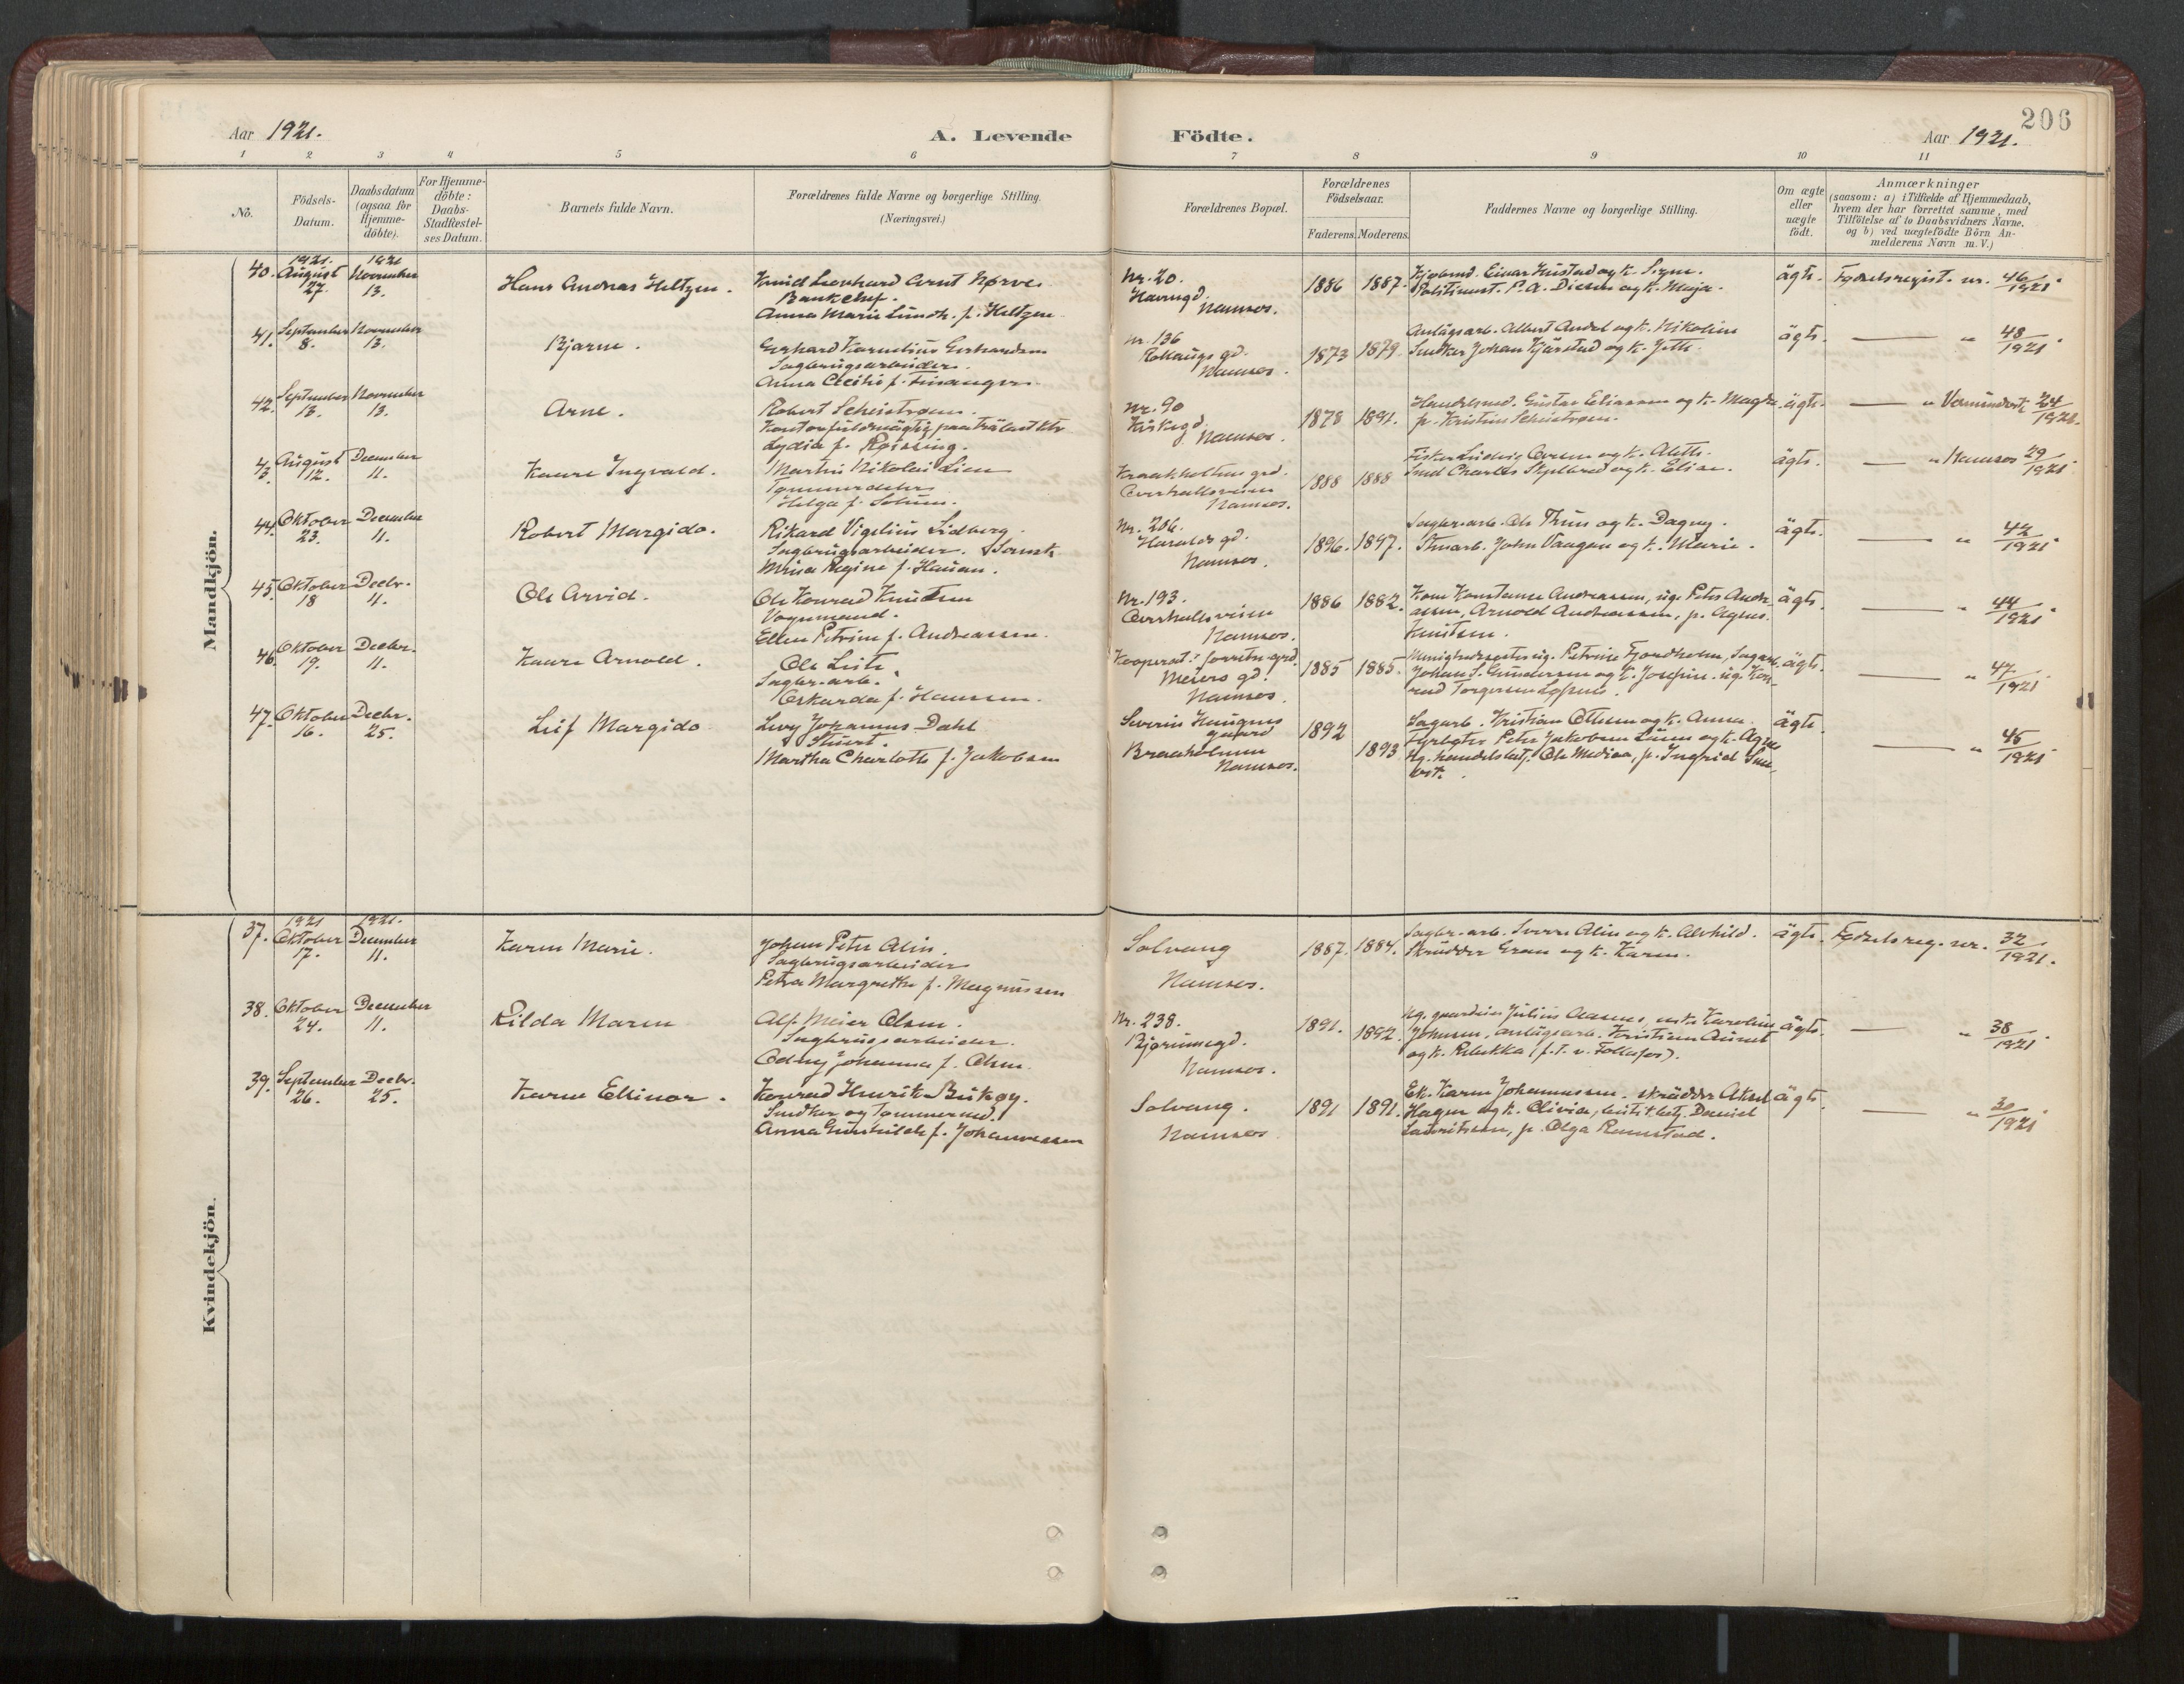 206
Aar 1921.
A. Levende
Födte.
Aar 1921.
1 2 3 4 5 6 7 8 9 10 11
No.
Födsels-
Datum.
Daabsdatum
(ogsaa for
Hjemme-
döbte).
For Hjemme-
döbte:
Daabs-
Stadfæstel-
ses Datum.
Barnets fulde Navn.
Forældrenes fulde Navne og borgerlige Stilling.
(Næringsvei.)
Forældrenes Bopæl.
Forældrenes
Födselsaar.
Faderens. Moderens.
Faddernes Navne og borgerlige Stilling.
Om ægte
eller
uægte
födt.
Anmærkninger
(saasom: a) i Tilfælde af Hjemmedaab,
hvem der har forrettet samme, med
Tilföielse af to Daabsvidners Navne.
og b) ved uægtefödte Börn An-
melderens Navn m. V.)
Mandkjön.
40.
1921.
August
27.
1921
November
13.
Hans Andreas Heltzen.
Knud Leonhard Arnt Nørve.
Bankchef.
Anna Marie Lundh. f. Heltzen
Nr. 20.
Havnegd.
Namsos.
1886 1887.
Kjøbmd. Einar Hustad og k. Signe.
Politimest. P. A. Diesen og k. Maja.
ägte. Fødselsregist. nr. 46/1921.
41.
September
8.
November
13.
Bjarne.
Gerhard Kornelius Gerhardsen
Sagbrugsarbeider.
Anna Cecilie f. Finanger.
nr. 136
gd.
Namsos.
1873 1879.
Anlägsarb. Albert Andal og k. Nikoline
Snedker Johan Kjärstad og k. Jette.
ägte. — „ 48/1921.
42.
September
13.
November
13.
Arne.
Robert Scheistrøen.
Kontorfuldmägtig paa trälast ktr
Lydia f. Røising.
Nr. 90
Kirkegd.
Namsos.
1878 1891.
Handelsmd. Gustav Eliassen og k. Magda
p. Kristine Scheistrøen.
ägte. — „ 24/1921.
43.
August
12.
December
11.
Kaare Ingvald.
Martin Nikolai Lien
Helga f. Solum.
Overhallsveien
Namsos.
1888 1888
Fisker Ludvig og k. Aleth.
Smed Charles og k. Elise.
ägte. — „ Namsos 29/1921.
44.
Oktober
23.
December
11.
Robert Margido.
Rikard Vigelius Lidberg.
Sagbrugsarbeider. Svensk
Regine f. Hauan.
Nr. 206.
Haralds gd.
Namsos.
1896. 1897.
Sagbr.-arb. Ole Thun og k. Dagny.
John Vaagen og k. Marie.
ägte. — „ 42/1921.
45.
Oktober
18
Decbr.
11.
Ole Arvid.
Ole Konrad Knutsen
Vognmand.
Ellen Petrine f. Andreassen.
Nr. 193.
Overhallsveien
Namsos.
1886 1882.
Kone Konstanse Andreassen, ug. Peter Andre-
assen, Arnold Andreassen, p. Agnes
Knutsen.
ägte. — „ 44/1921.
46.
Oktober
19.
Decbr.
11.
Kaare Arnold.
Ole Leite.
Sagbr.-arb.
Oskarda f. Hanssen.
Kooperat. forretn. grd.
Meiers gd.
Namsos.
1885 1885.
Petrine Fjordholm, Sagarb.
Johan S. Gundersen og k. Josefine. ug. Kon-
rad Torgersen
ägte. — „ 47/1921.
47.
Oktober
16.
Decbr.
25.
Leif Margido
Levy Johannes Dahl
Stuert.
Martha Charlotte f. Jakobsen
Severin Haugnes
gaard
Braaholmen
Namsos.
1892 1893
Sagarb. Kristian Ottesen og k. Anna.
Fyrbøter Peter Jakobsen Lunn og k. Agnes
Ug. handelsbetj. Ole Mediaa, p. Ingrid
ägte. — „ 45/1921.
Kvindekjön.
37.
1921
Oktober
17.
1921.
December
11.
Karen Marie.
Johan Peter Alin.
Sagbrugsarbeider
Petra Margrethe f. Magnussen
Solvang
Namsos.
1887. 1884.
Sagbr.-arb. Sverre Alin og k. Alvhild.
Skrädder Gran og k. Karen.
ägte. Fødselsreg. nr. 32/1921.
38.
Oktober
24.
December
11.
Kilda Maren
Alf Meier Olsen.
Sagbrugsarbeider.
Odny Johanna f. Olsen.
Nr. 238.
Bjørumsgd.
Namsos.
1891. 1892.
Ug. gaardeier Julius Aasnes, enke Karoline
Johnsen, anlägsarb. Kristian Aunet
og k. Rebekka (f. T. v. Follafos).
ägte. — „ 38/1921.
39.
September
26.
Decbr.
25.
Karen Ellinor.
Konrad Henrik Bukøy.
Snedker og Tømmermd.
Anna Gunhilde f. Johannessen
Solvang.
Namsos.
1891 1891.
Ek. Karen Johannessen. skrädder Aksel
Hagen og k. Olivia, butikbetj. Daniel
Lauritssen, p. Olga Ramstad.
ägte. — „ 30/1921.